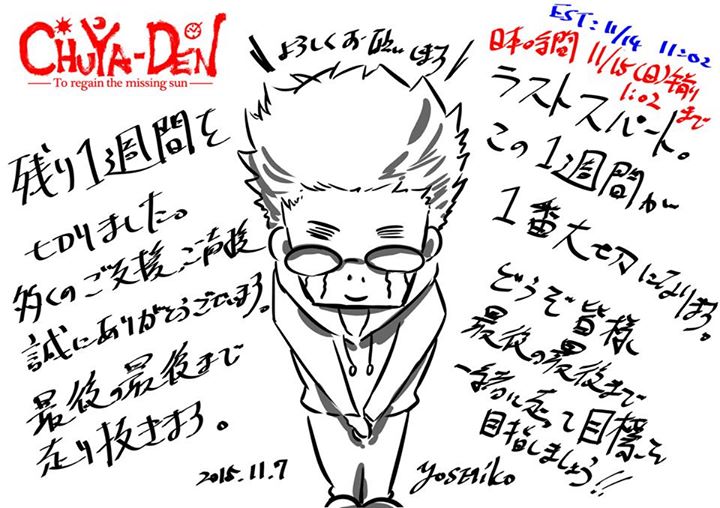 CHUYA-DEN
To regain the missing sun
よろしくお願いします
EST: 11/14 11:02
日本時間 11/15(日)午前
1:02 まで
残り1週間を
切りました。
多くのご支援、ご声援
誠にありがとうございます。
最後の最後まで
走り抜きます。
ラストスパート。
この1週間が
1番大切になります。
どうぞ皆様
最後の最後まで
一緒に走って目標を
目指しましょう!!
2015.11.7
YOSHIKO